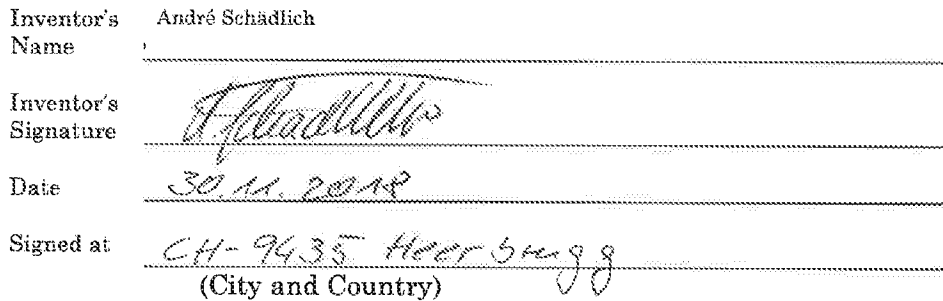 Inventor's Name André Schädlich
Inventor's Signature A. Schädlich
Date 30.11.2018
Signed at CH-9435 Heerbrugg
(City and Country)